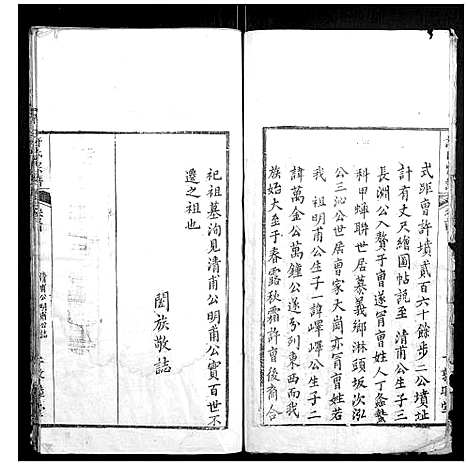 式距曾許墳貳百六十餘步二公墳址
計有丈尺繪圖帖說至 清甫公生子三
長淵公入贅于曾遂冐曾姓人丁螽蟄
科甲蟬聯世居慕義鄉淋頭坂次泓
公三沁公世居曾家大崗亦冐曾姓若
我 祖明甫公生子一諱嶧嶧公生子二
諱萬金公萬鐘公遂分列東西而我
族始大至于春露秋霜許曾後裔合
祀祖墓洵見清甫公明甫公實百世不
遷之祖也
闔族敬誌
清甫公明甫公誌